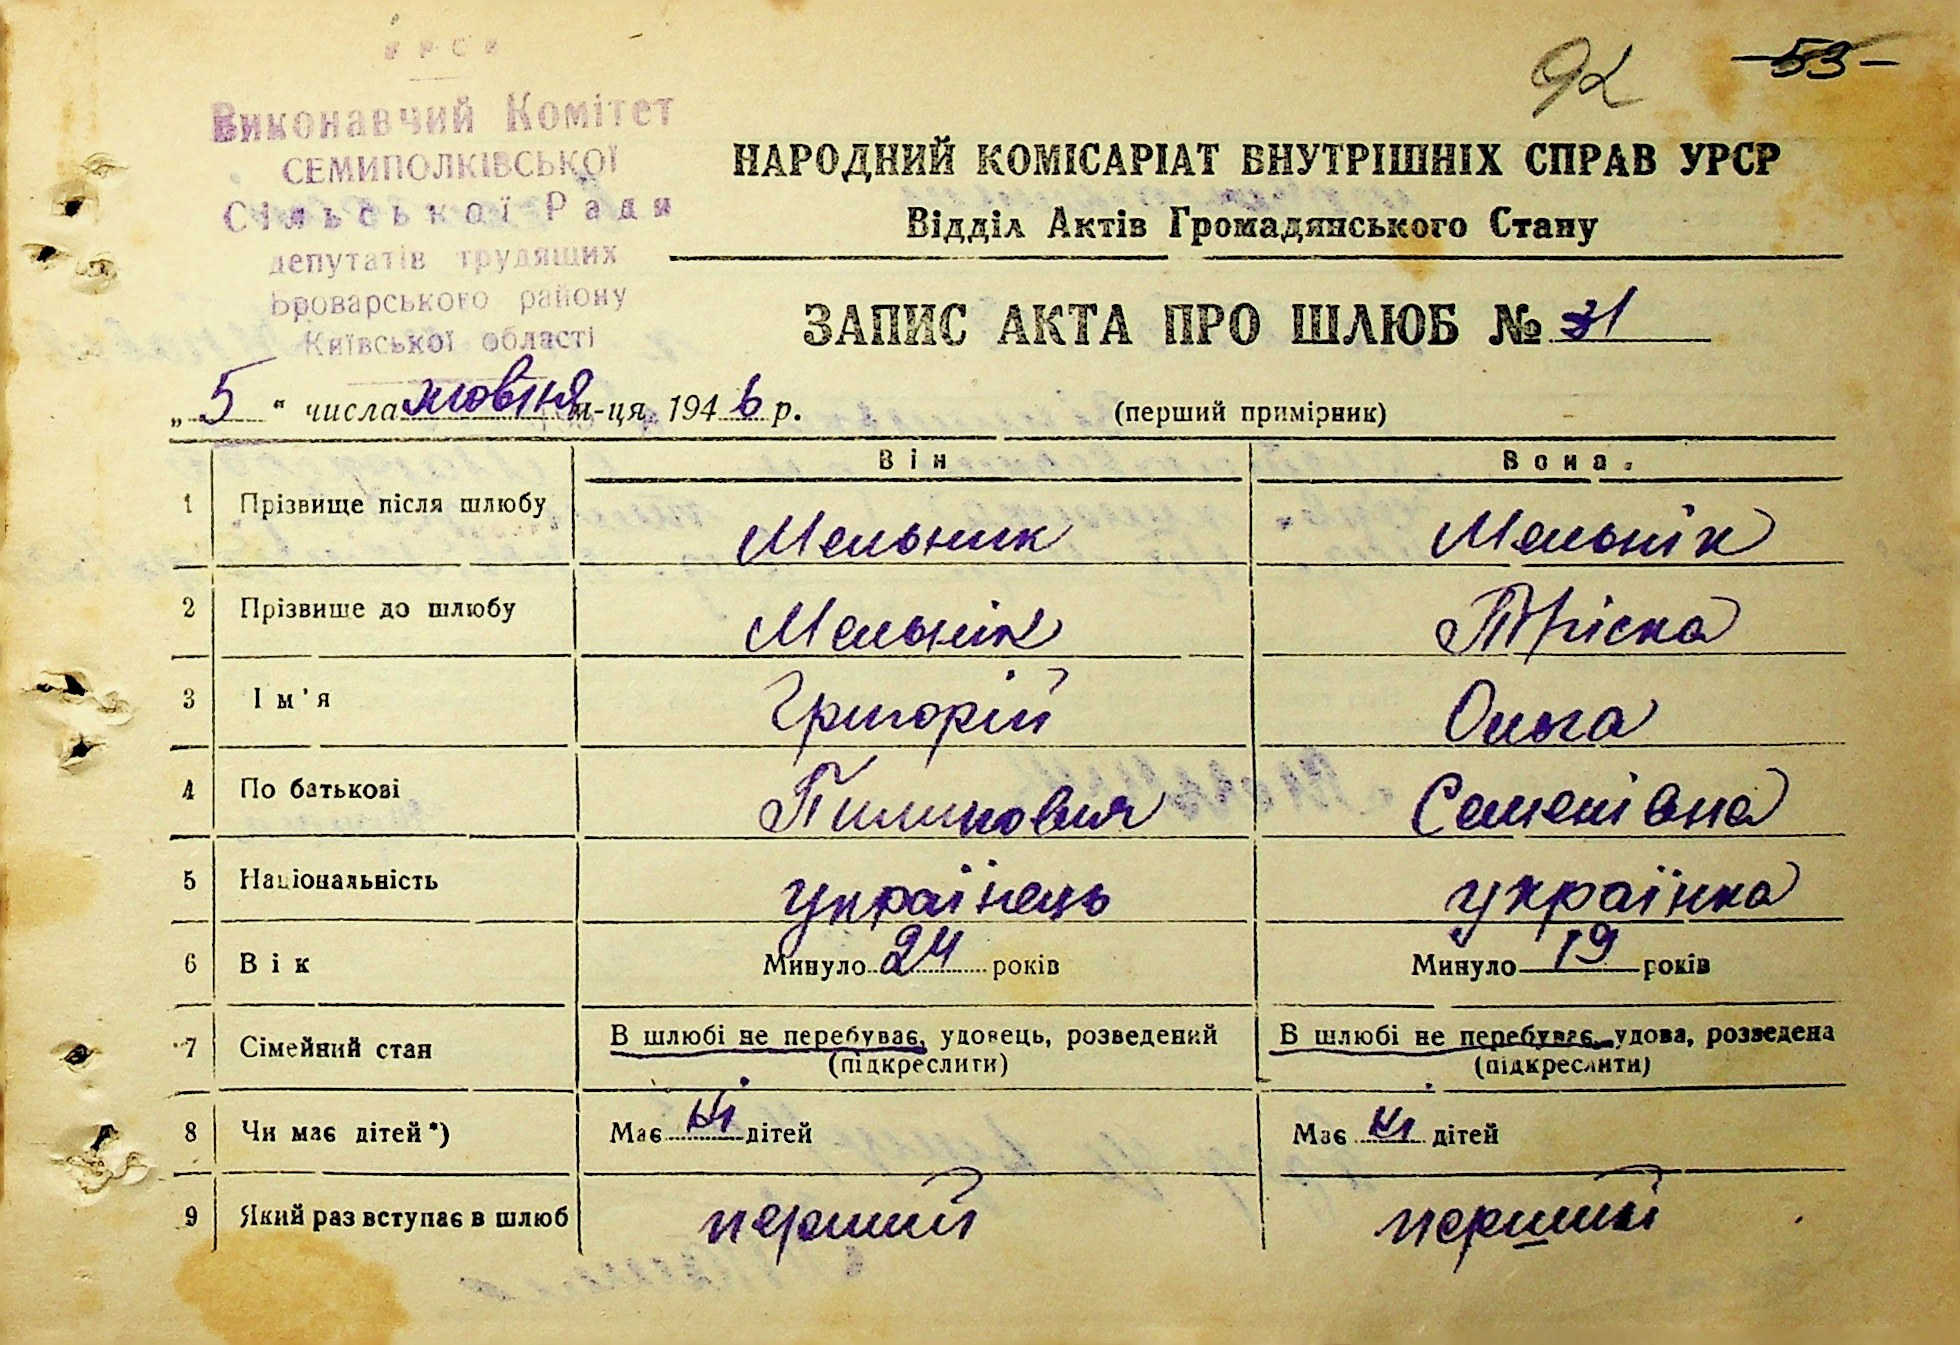 УРСР
Виконавчий Комітет
СЕМИПОЛКІВСЬКОЇ
Сільської Ради
депутатів трудящих
Броварського району
Київської області
92 53
НАРОДНИЙ КОМІСАРІАТ ВНУТРІШНІХ СПРАВ УРСР
Відділ Актів Громадянського Стану
ЗАПИС АКТА ПРО ШЛЮБ № 31
„5" числа жовтня м-ця 1946 р. (перший примірник)
Він Вона
1 Прізвище після шлюбу Мельник Мельнік
2 Прізвище до шлюбу Мельнік Тріска
3 Ім'я Григорій Ольга
4 По батькові Пилипович Семенівна
5 Національність українець українка
6 Вік Минуло 24 років Минуло 19 років
7 Сімейний стан В шлюбі не перебуває, удовець, розведений В шлюбі не перебуває, удова, розведена
(підкреслити) (підкреслити)
8 Чи має дітей*) Має ні дітей Має ні дітей
9 Який раз вступає в шлюб перший перший